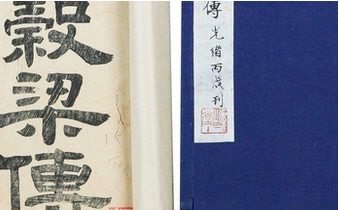 穀梁傳
傳
光緒丙戌刊